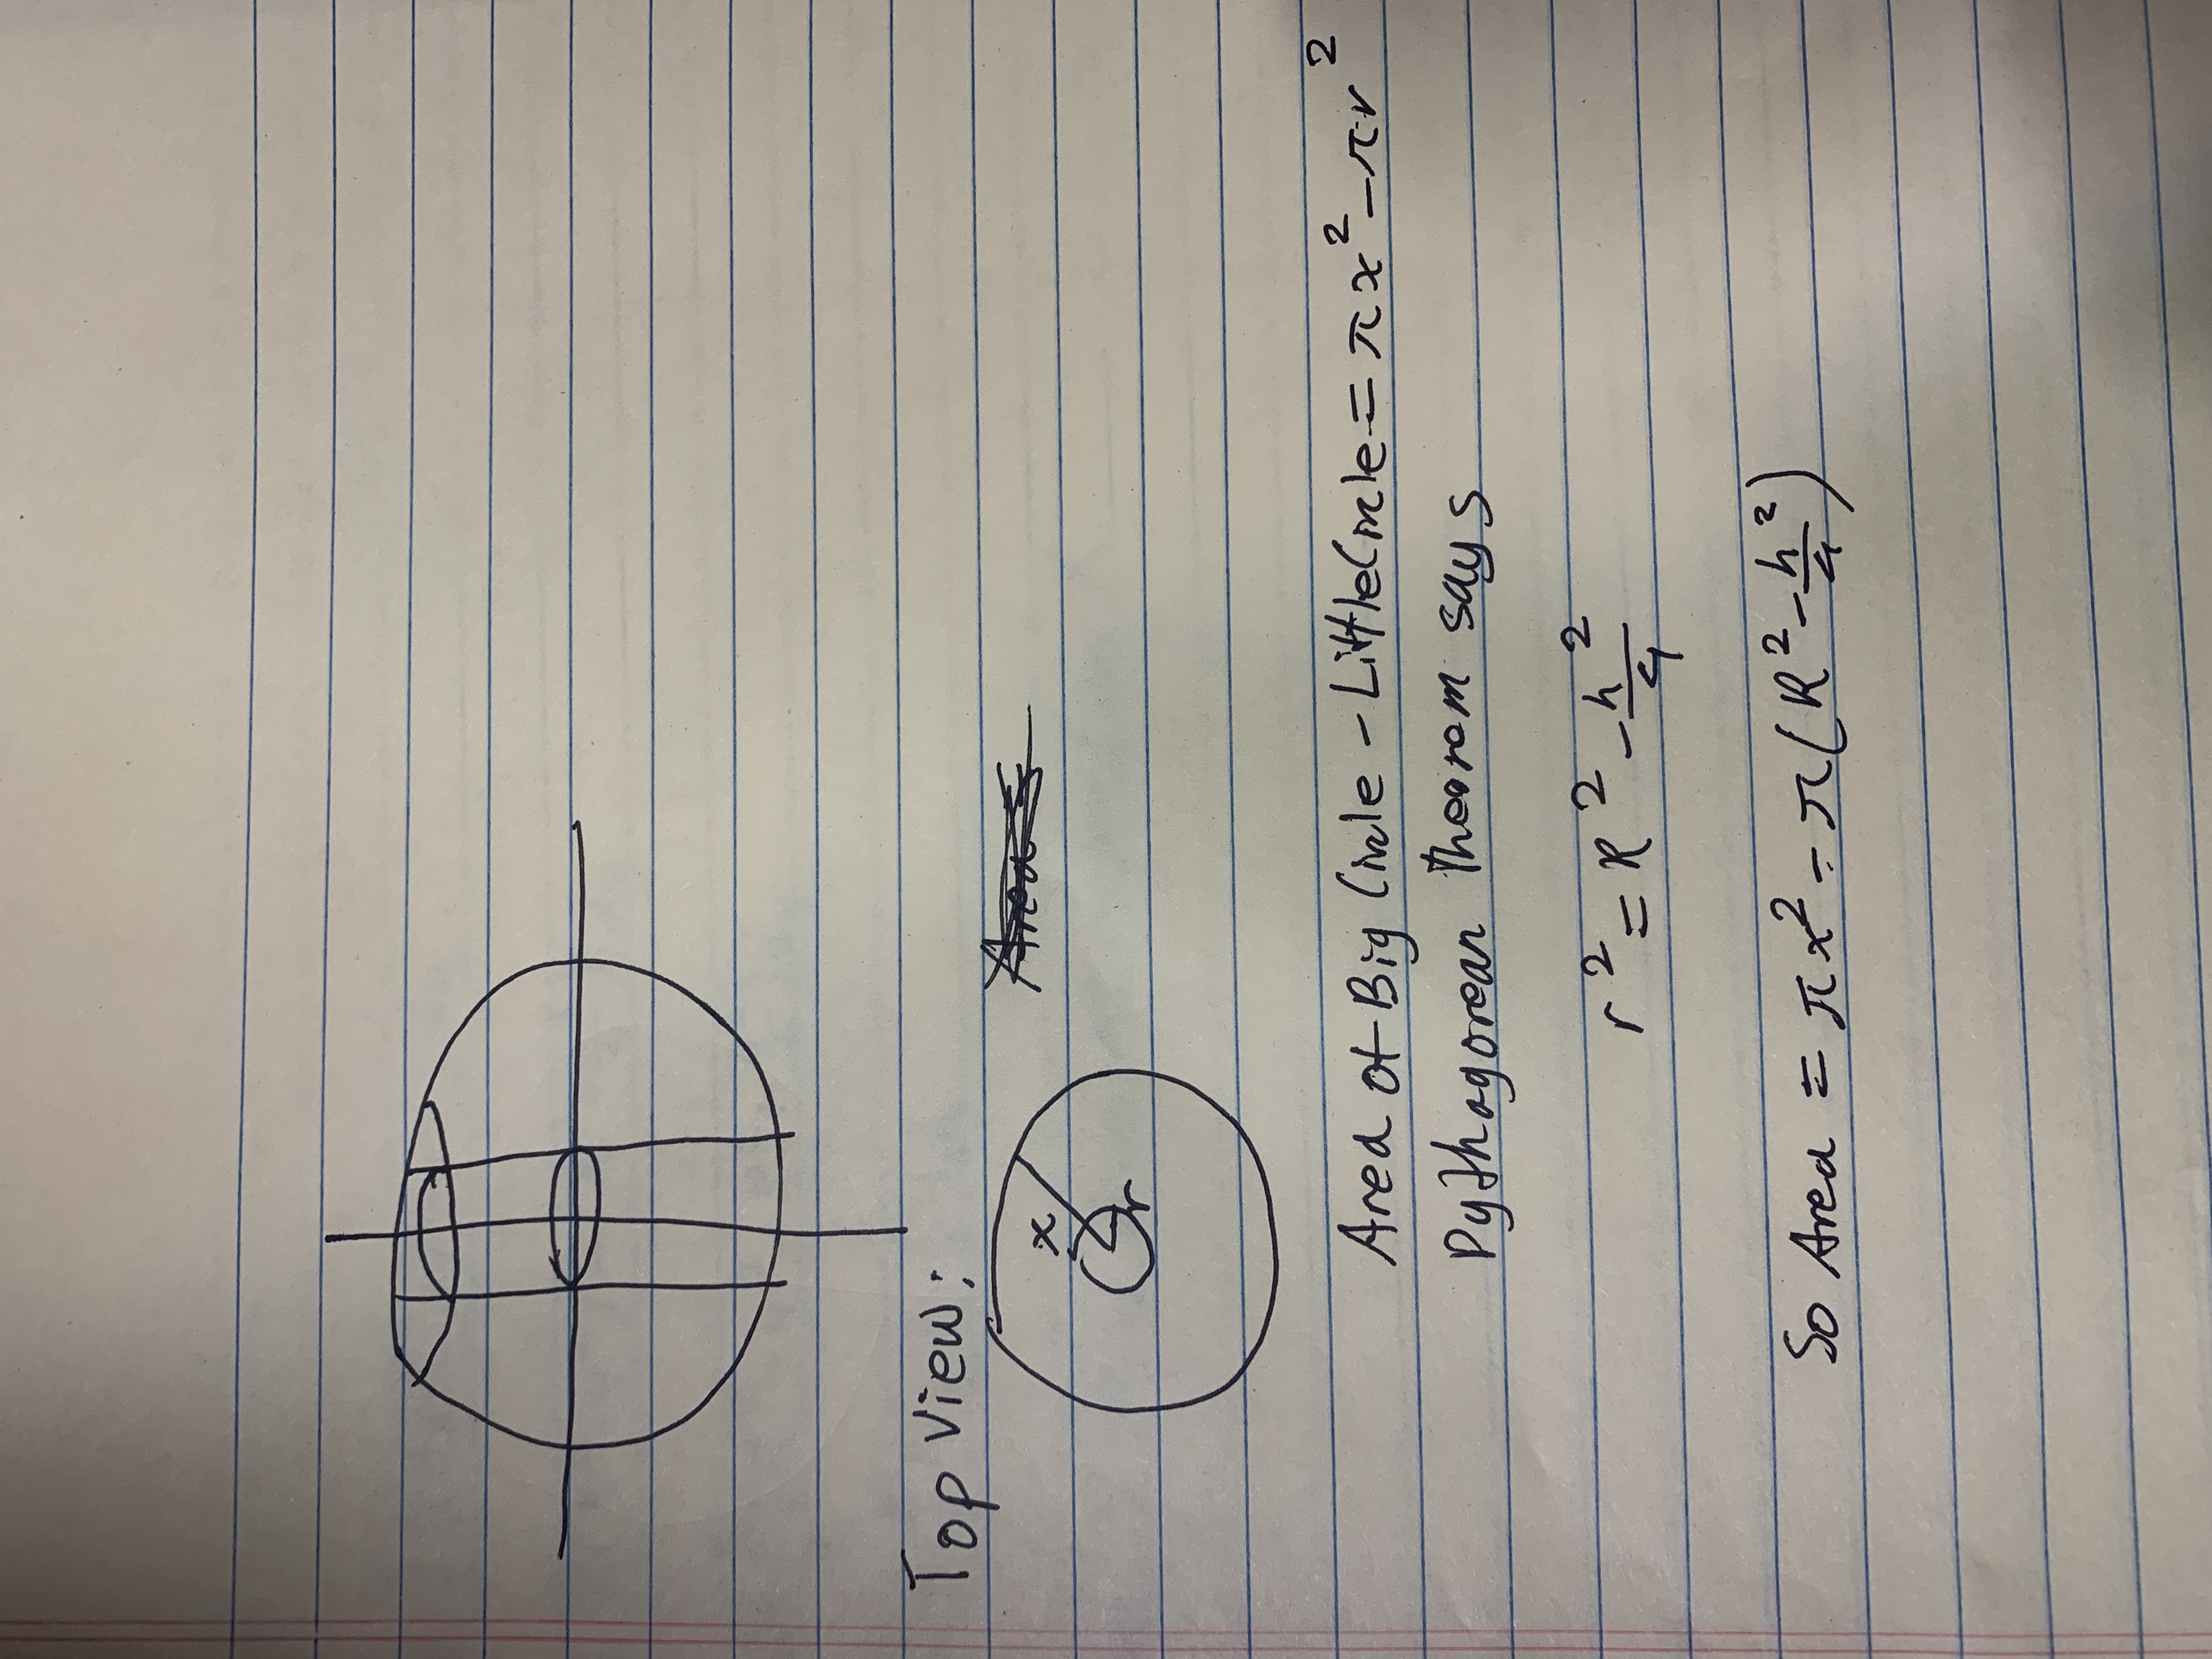 Top View:
x
r
Area of Big Circle - Little Circle = πx² - πr²
Pythagorean Theorem says
r² = R² - h²/4
So Area = πx² - π(R² - h²/4)